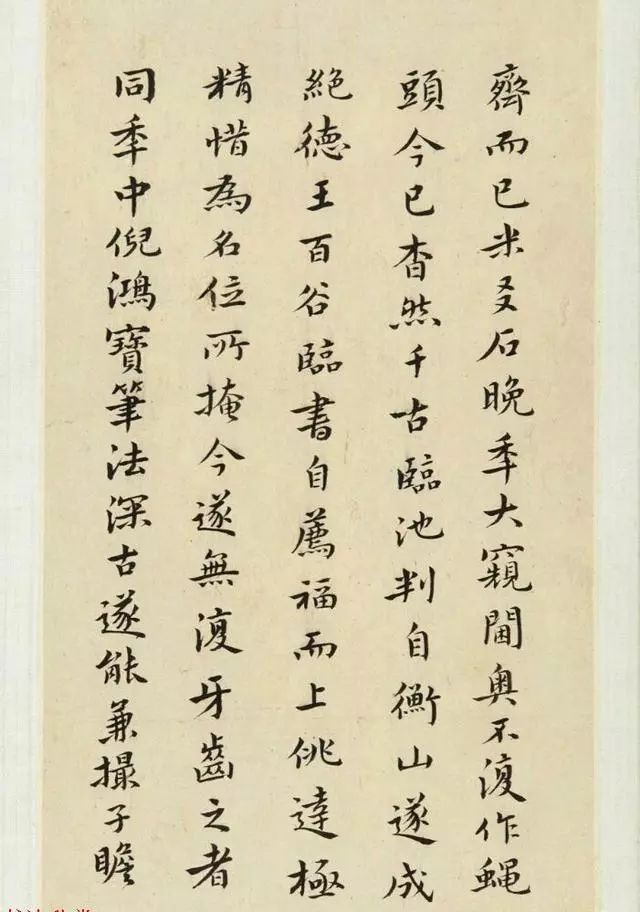 齊而已米友石晚年大窺閫奧不復作蝇
頭今已杳然千古臨池判自衡山遂成
絕德王百谷臨書自薦福而上佻達極
精惜為名位所掩今遂無復牙齒之者
同年中倪鴻寶筆法深古遂能兼撮子瞻